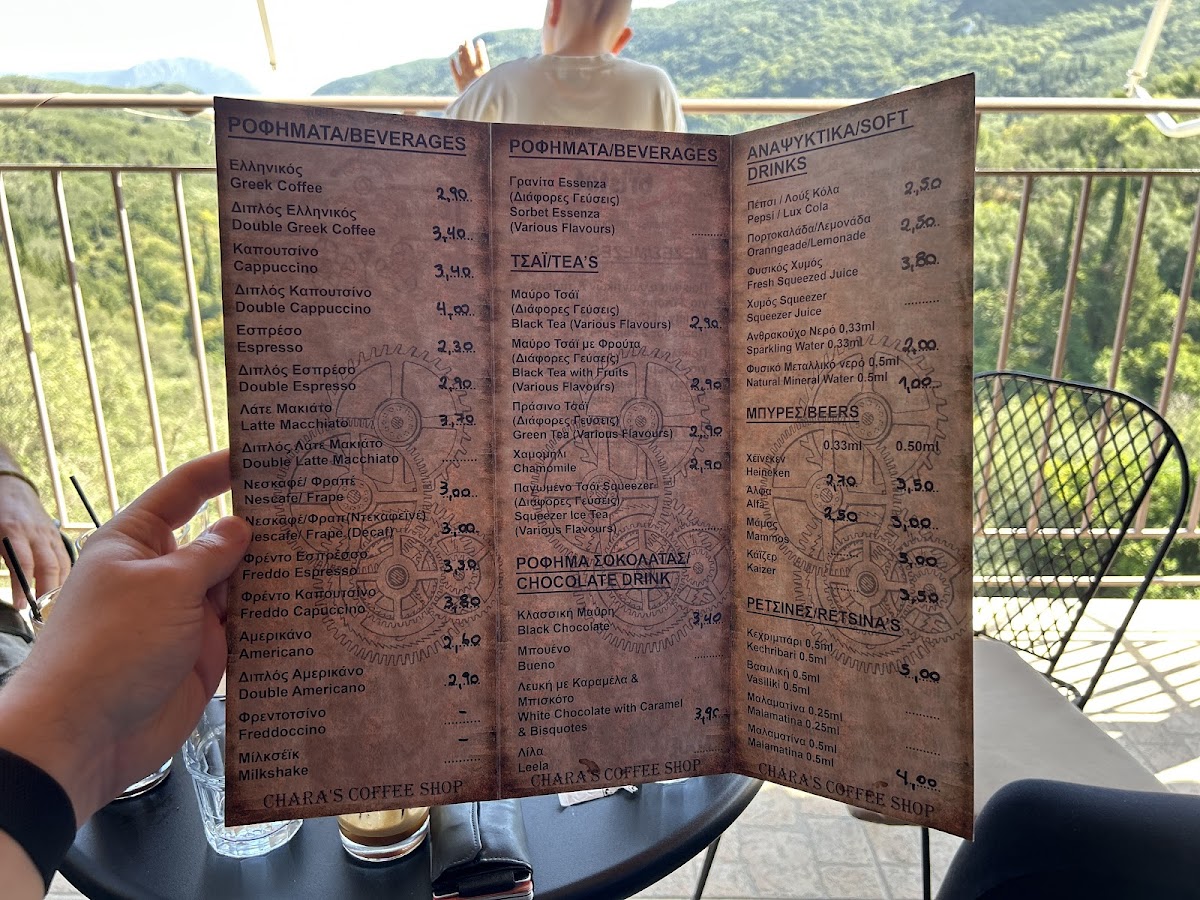 ΡΟΦΗΜΑΤΑ/BEVERAGES
Ελληνικός
Greek Coffee 2,90
Διπλός Ελληνικός
Double Greek Coffee 3,40
Καπουτσίνο
Cappuccino 3,40
Διπλός Καπουτσίνο
Double Cappuccino 4,00
Εσπρέσο
Espresso 2,30
Διπλός Εσπρέσο
Double Espresso 2,90
Λάτε Μακιάτο
Latte Macchiato 3,70
Διπλός Λάτε Μακιάτο
Double Latte Macchiato ..........
Νεσκαφέ/ Φραπέ
Nescafe/ Frape 3,00
Νεσκαφέ/Φραπ(Ντεκαφεϊνέ)
Nescafe/ Frape (Decaf) 3,00
Φρέντο Εσπρέσσο
Freddo Espresso 3,30
Φρέντο Καπουτσίνο
Freddo Capuccino 3,80
Αμερικάνο
Americano 2,40
Διπλός Αμερικάνο
Double Americano 2,90
Φρεντοτσίνο
Freddoccino –
Μίλκσέϊκ
Milkshake –
CHARA'S COFFEE SHOP
ΡΟΦΗΜΑΤΑ/BEVERAGES
Γρανίτα Essenza
(Διάφορες Γεύσεις)
Sorbet Essenza
(Various Flavours) ..........
ΤΣΑΪ/TEA'S
Μαυρο Τσάϊ
(Διάφορες Γεύσεις)
Black Tea (Various Flavours) 2,90
Μαυρο Τσάϊ με Φρούτα
(Διάφορες Γεύσεις)
Black Tea with Fruits
(Various Flavours) 2,90
Πράσινο Τσάϊ
(Διάφορες Γεύσεις)
Green Tea (Various Flavours) 2,90
Χαμομήλι
Chamomile 2,90
Παγωμένο Τσάϊ Squeezer
(Διάφορες Γεύσεις)
Squeezer Ice Tea
(Various Flavours) ..........
ΡΟΦΗΜΑ ΣΟΚΟΛΑΤΑΣ/
CHOCOLATE DRINK
Κλασσική Μαύρη
Black Chocolate 3,40
Μπουένο
Bueno ..........
Λευκή με Καραμέλα &
Μπισκότο
White Chocolate with Caramel 3,90
& Bisquotes
Λίλα
Leela ..........
CHARA'S COFFEE SHOP
ΑΝΑΨΥΚΤΙΚΑ/SOFT
DRINKS
Πέπσι / Λούξ Κόλα 2,50
Pepsi / Lux Cola
Πορτοκαλάδα/Λεμονάδα 2,50
Oranngeade/Lemonade
Φυσικός Χυμός 3,80
Fresh Squeezed Juice
Χυμός Squeezer ..........
Squeezer Juice
Ανθρακούχο Νερό 0,33ml
Sparkling Water 0.33ml 2,00
Φυσικό Μεταλλικό νερό 0,5ml
Natural Mineral Water 0.5ml 1,00
ΜΠΥΡΕΣ/BEERS
0.33ml 0.50ml
Χεϊνεκεν
Heineken 2,70 3,50
Αλφα
Alfa 2,50 3,00
Μάμος
Mammos .......... 3,00
Καϊζερ
Kaizer 3,50
ΡΕΤΣΙΝΕΣ/RETSINA'S
Κεχριμπάρι 0,5ml
Kechribari 0.5ml 5,00
Βασιλική 0.5ml
Vasiliki 0.5ml ..........
Μαλαματίνα 0,25ml
Malamatina 0.25ml ..........
Μαλαματίνα 0.5ml
Malamatina 0.5ml 4,00
CHARA'S COFFEE SHOP